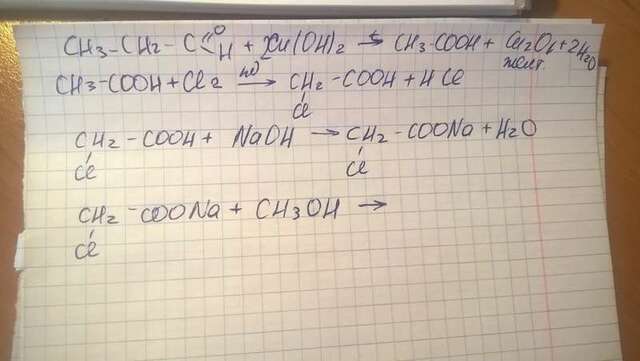 CH3-CH2-C=O H + 2Cu(OH)2 →t CH3-COOH + Cu2O↓ + 2H2O
желт.
CH3-COOH + Cl2 → CH2-COOH + HCl
Cl
CH2-COOH + NaOH → CH2-COONa + H2O
Cl Cl
CH2-COONa + CH3OH →
Cl